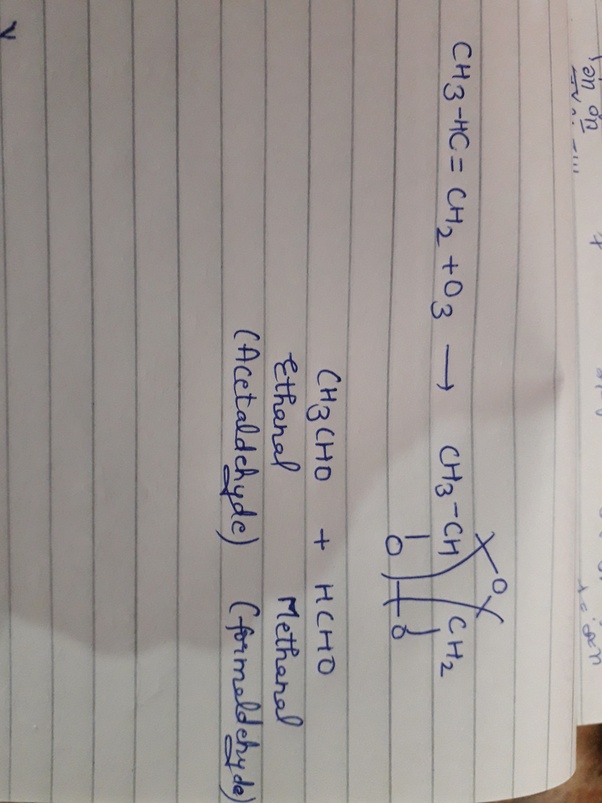 CH3-HC=CH2 + O3 → CH3-CH CH2
O
O O
CH3CHO + HCHO
Ethanal Methanal
(Acetaldehyde) (formaldehyde)